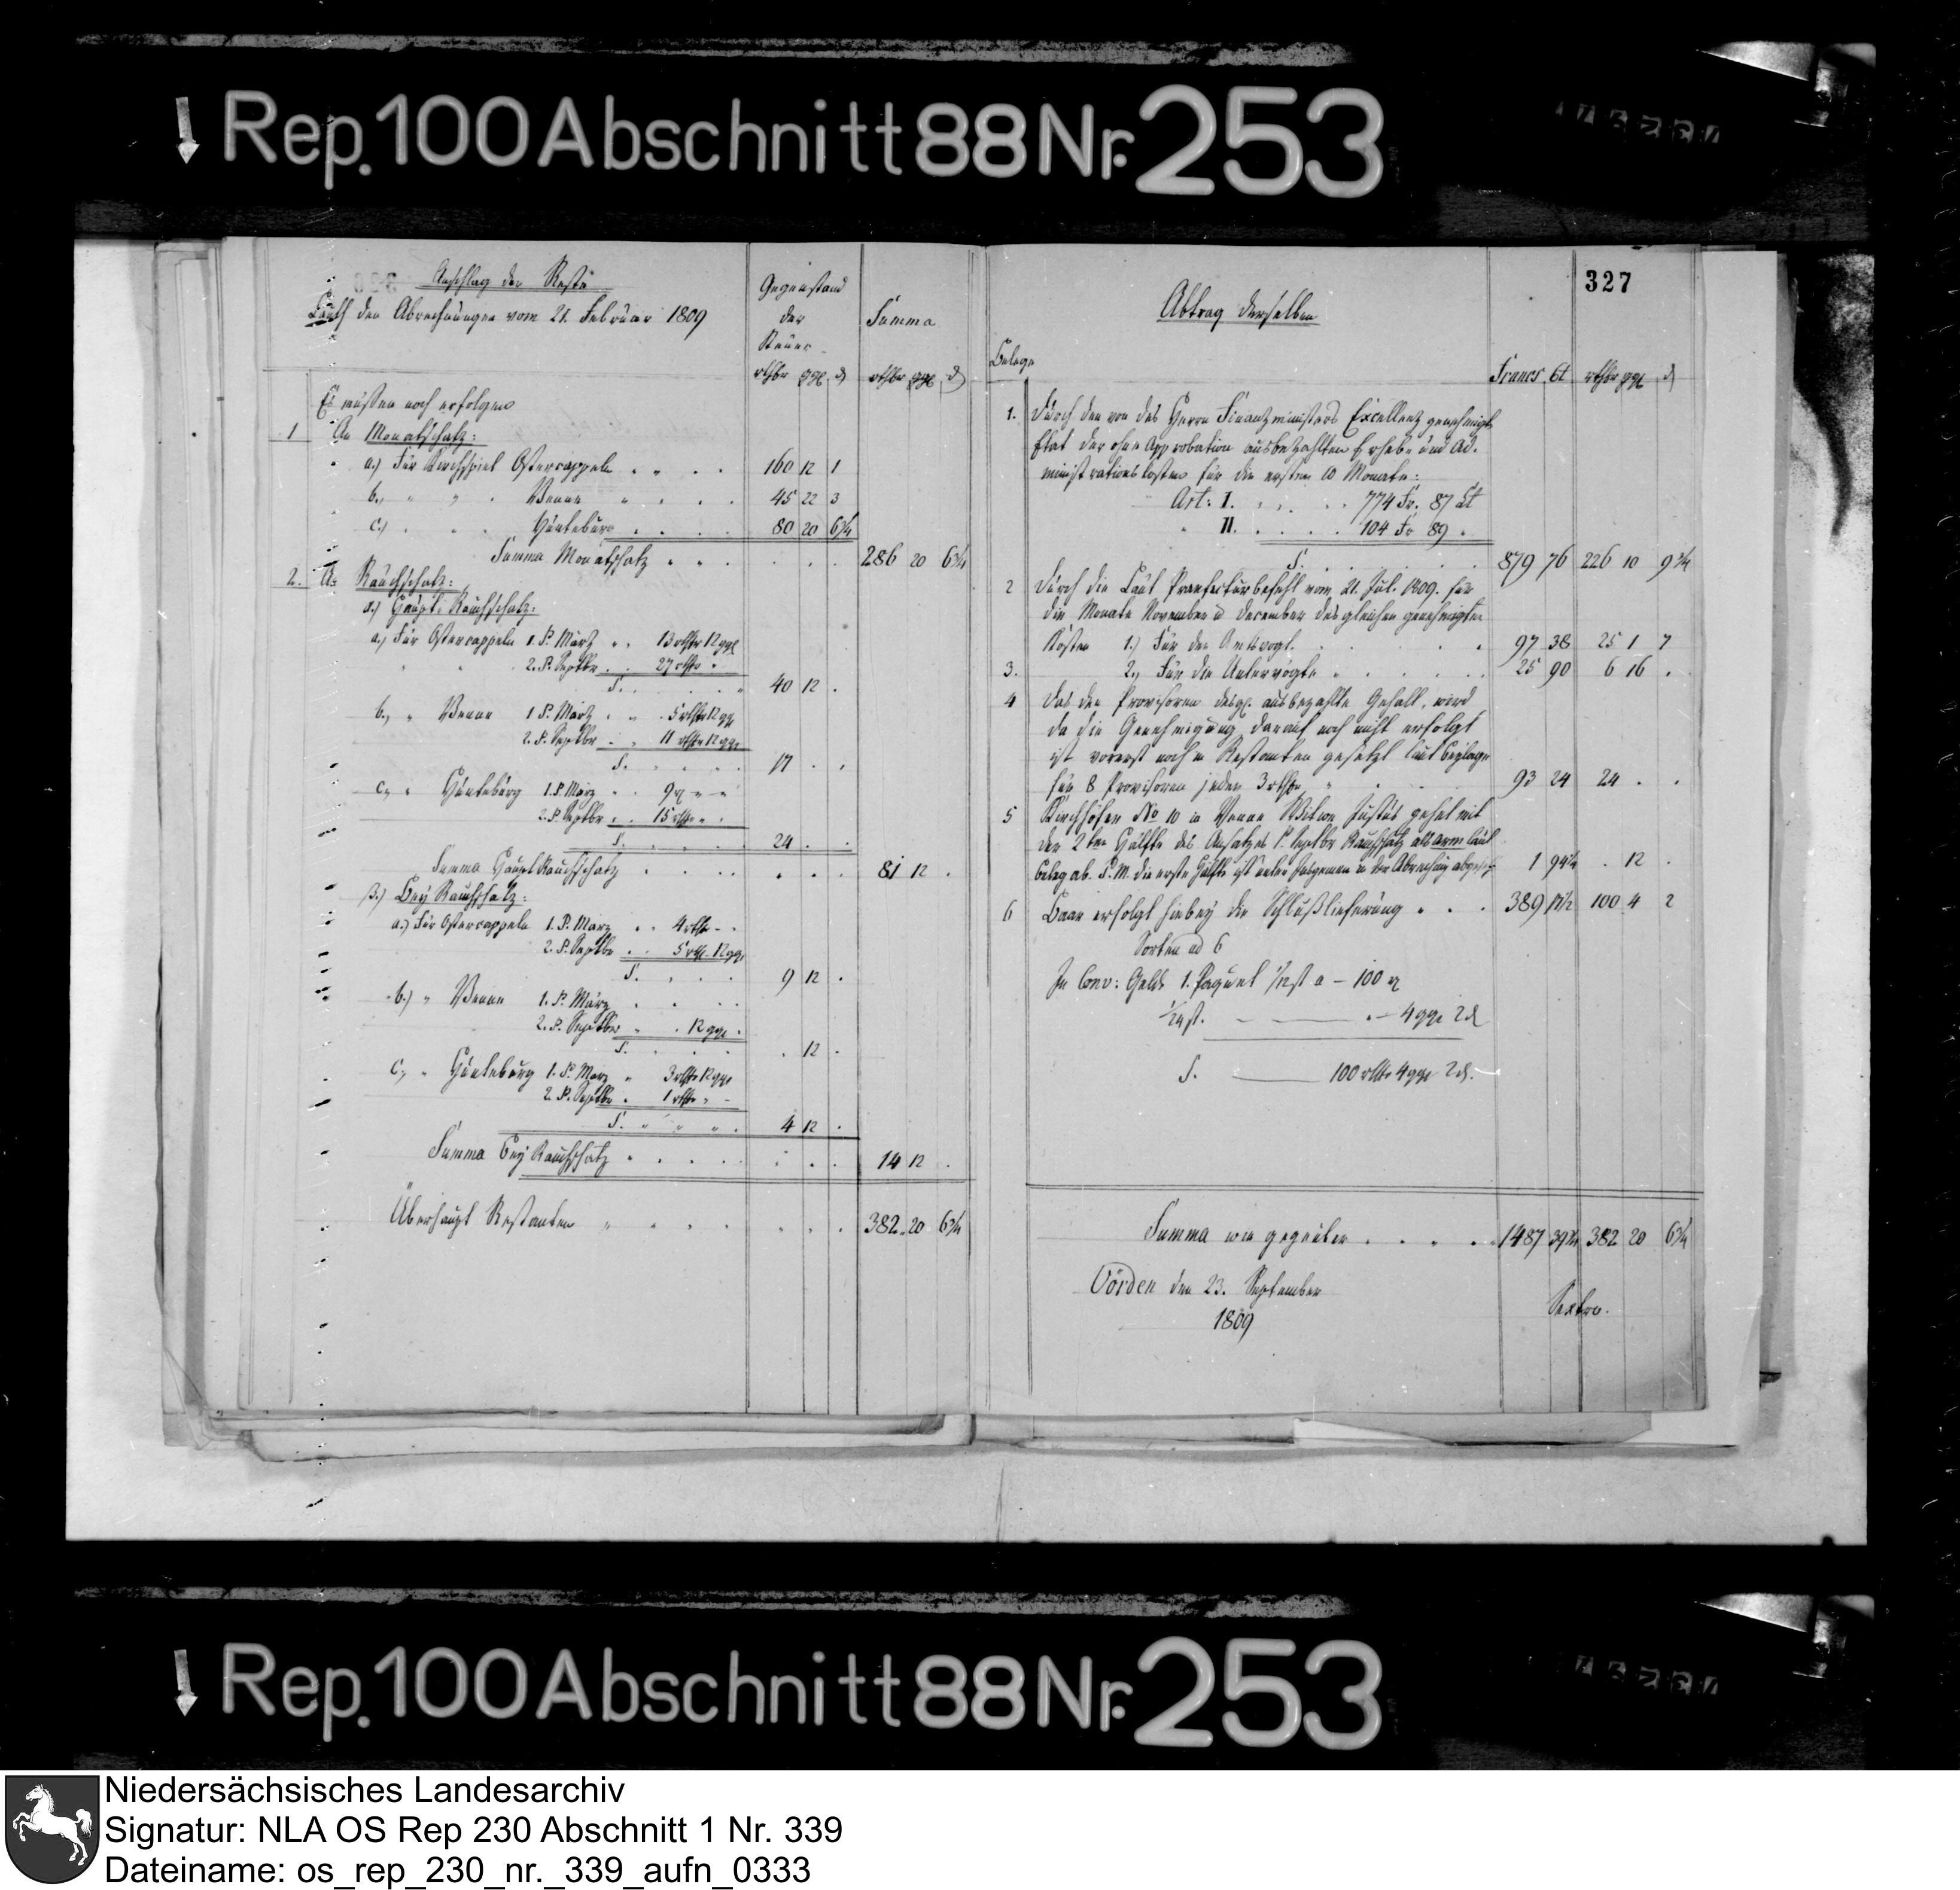 Rep. 100 Abschnitt 88 Nr. 253
Anschlag der Reste
Lauth den Abrechnungen vom 21. Februar 1809
Gegenstand
der
Steuer
Summa
rthlr ggl. d
rthlr ggl d
Es müssen noch erfolgen
1 An Monatschatz:
a.) Für Kirchspiel Ostercappeln . . . . 160 12 1
b., " " . Venne " . . . 45 22 3
c.) . . . Hünteburg . . . . 80 20 6¾
Summa Monatschatz . . . . . . 286 20 6¾
2. A: Rauchschatz:
α.) Haupt-Rauchschatz:
a., Für Ostercappeln 1. P. Märtz . . 13 rthlr 12 ggl
2. P. Septbr . . 27 rthlr .
S. . . . . . 40 12 .
b., " Venne 1 P. Märtz . . 5 rthlr 12 ggl
2. P. Septbr . . 11 rthlr 12 ggl
S. . . . . . 17 . .
c., " Hünteburg 1. P. Märtz . . 9 rt " "
2. P. Septbr . . 15 rthlr " .
S. . . . . 24 . .
Summa Haupt Rauchschatz . . . . . . . 81 12 .
β.) Bey Rauchschatz:
a.) Für Ostercappeln 1. P. Märtz . . 4 rthlr - -
2. P. Septbr . . 5 rthl. 12 ggl
S. . . . 9 12 .
b.) " Venne 1. P. Märtz . . . .
2. P. Septbr " . 12 ggl .
S. . . . . 12 .
c., " Hünteburg 1. P. Märtz " 3 rthlr 12 ggl
2. P. Septbr . 1 rthlr " -
S. " " " . 4 12 .
Summa Bey Rauchschatz . . . . . . . . 14 12 .
Überhaupt Restanten " . . . . . . . 382. 20 6¾
327
Abtrag derselben
Belege
Francs Ct rthlr ggl d
1. Durch den von des Herrn Finantzministers Excellentz genehmigten
Etat der ohne Approbation ausbezahlten Erheb- und Ad-
ministrationskosten für die ersten 10 Monate:
Art: I. . . . . . 774 Fr. 87 Ct
" II. . . . . . 104 Fr 89 "
S. . . . . 879 76 226 10 9¾
2 Durch die Laut Praefecturbefehl vom 21. Jul. 1809. für
die Monate November u December desgleichen genehmigten
Kosten 1.) Für den Amtsvogt. . . . . 97 38 25 1 7
3. 2., Für die Untervögte " . . . . 25 90 6 16 .
4 Das den Provisoren desgl. ausbezahlte Gehalt, wird
da die Genehmigung darauf noch nicht erfolgt
ist vorerst noch in Restanten gesetzt laut Beylage
für 8 Provisoren jeden 3 rthlr " . . . 93 24 24 . .
5 Kirchhöfer No 10 in Venne Witwe Justus gehet mit
der 2ten Hälfte des Ansatzes P. Septbr Rauchschatz als arm laut
Beleg ab. P. M. die erste Hälfte ist unter in der Abrechnung 1 94¼ . 12 .
6 Baar erfolgt hiebey die Schlußlieferung . . . 389 17½ 100 4 2
Sorten ad 6
In Conv: Gelde 1. Paquet 1/12 st a — 100 rt
1/24 st. — — . — 4 ggl 2 d
S. — 100 rthlr 4 ggl 2 d.
Summa wie gegenüber . . . . . 1487 39¾ 382 20 6¾
Vörden den 23. September
1809
Sextro.
Rep. 100 Abschnitt 88 Nr. 253
Niedersächsisches Landesarchiv
Signatur: NLA OS Rep 230 Abschnitt 1 Nr. 339
Dateiname: os_rep_230_nr._339_aufn_0333